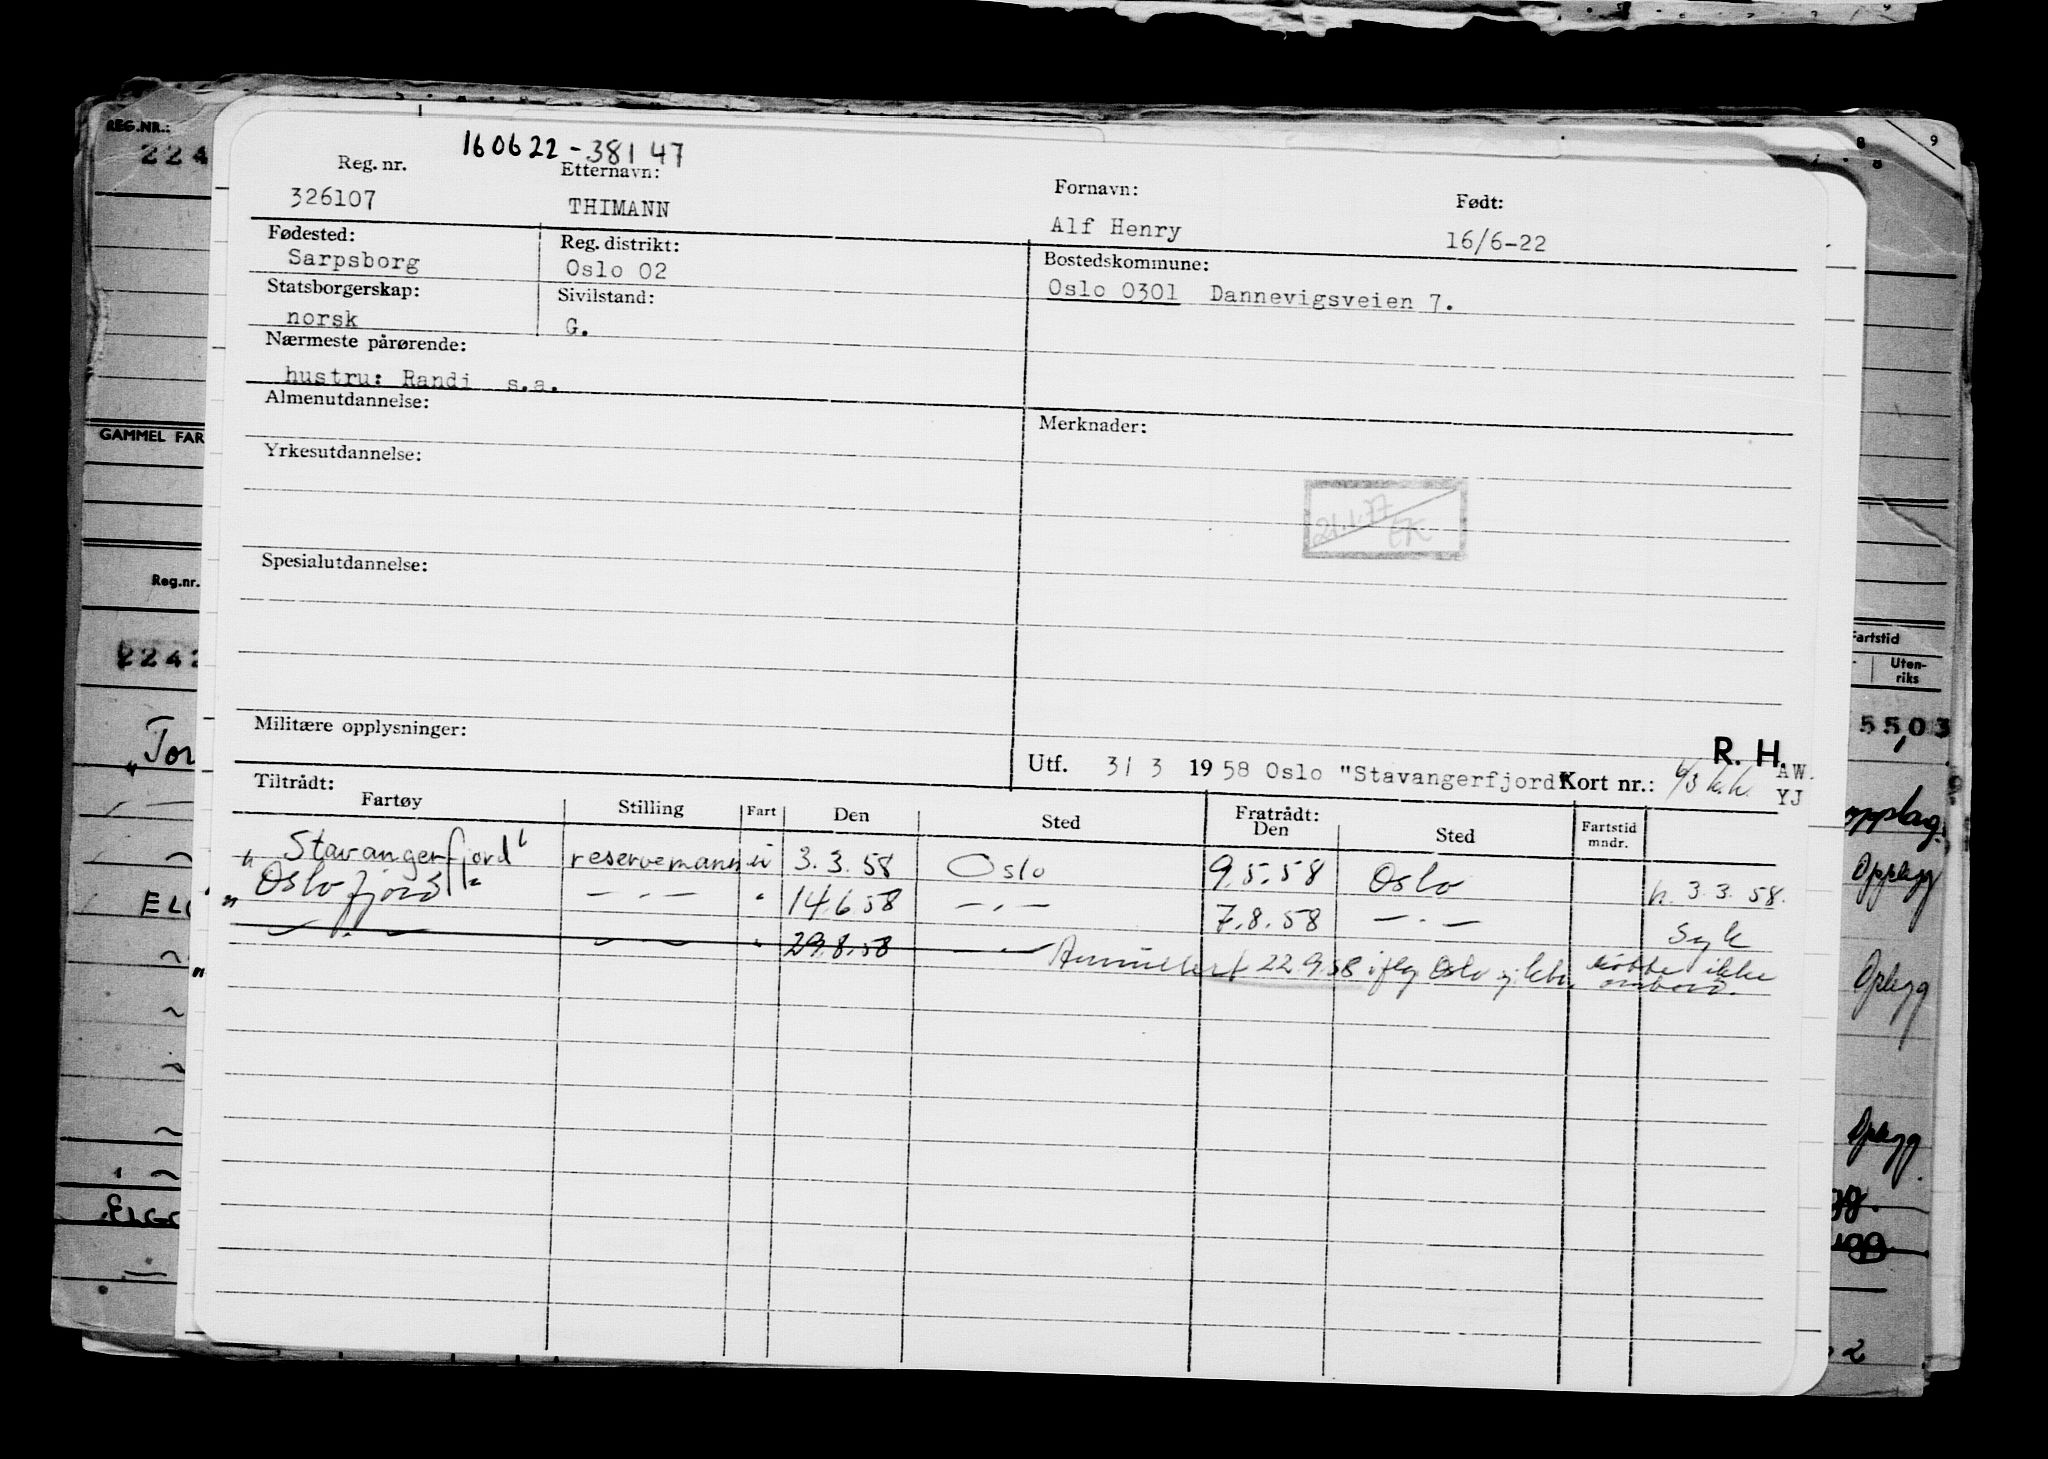 160622-38147
Reg. nr. Etternavn: Fornavn: Født:
326107 THIMANN Alf Henry 16/6-22
Fødested: Reg. distrikt: Bostedskommune:
Sarpsborg Oslo 02 Oslo 0301 Dannevigsveien 7.
Statsborgerskap: Sivilstand:
norsk G.
Nærmeste pårørende:
hustru: Randi s.a.
Almenutdannelse: Merknader:
Yrkesutdannelse:
21.1.77
EK
Spesialutdannelse:
Militære opplysninger:
R. H. AW.
Utf. 31 3 1958 Oslo "Stavangerfjord" Kort nr.: YJ
Tiltrådt: Fratrådt:
Fartøy Stilling Fart Den Sted Den Sted Fartstid mndr.
"Stavangerfjord" reservemann u 3.3.58 Oslo 9.5.58 Oslo h. 3.3.58.
"Oslofjord" — . — " 14.6.58 — . — 7.8.58 — . — Syk
— . — — — " 29.8.58 — — Annullert 22.9.58 iflg Oslo møtte ikke
ombord.
REG.NR.:
224
GAMMEL FAR
Reg.nr.
2242
Tor
ELG
ELGO
8 9
Fartstid
Uten-
riks
5503
opplag.
Opplegg
Oplegg
Oplegg
gg.
2